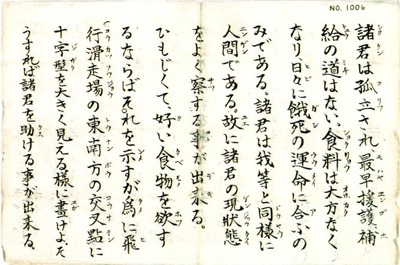 NO. 1006
諸君は孤立され、最早援護、補
給の道はない。食料は大方なく
なり日々に餓死の運命に合ふの
みである。諸君は我等と同様に
人間である。故に諸君の現狀態
をよく察する事が出來る。
ひもじくて、好い食物を欲す
るならばそれを示すが爲に飛
行滑走場の東南方の交叉點に
十字型を大きく見える樣に畫けよ。さ
うすれば諸君を助ける事が出来る。